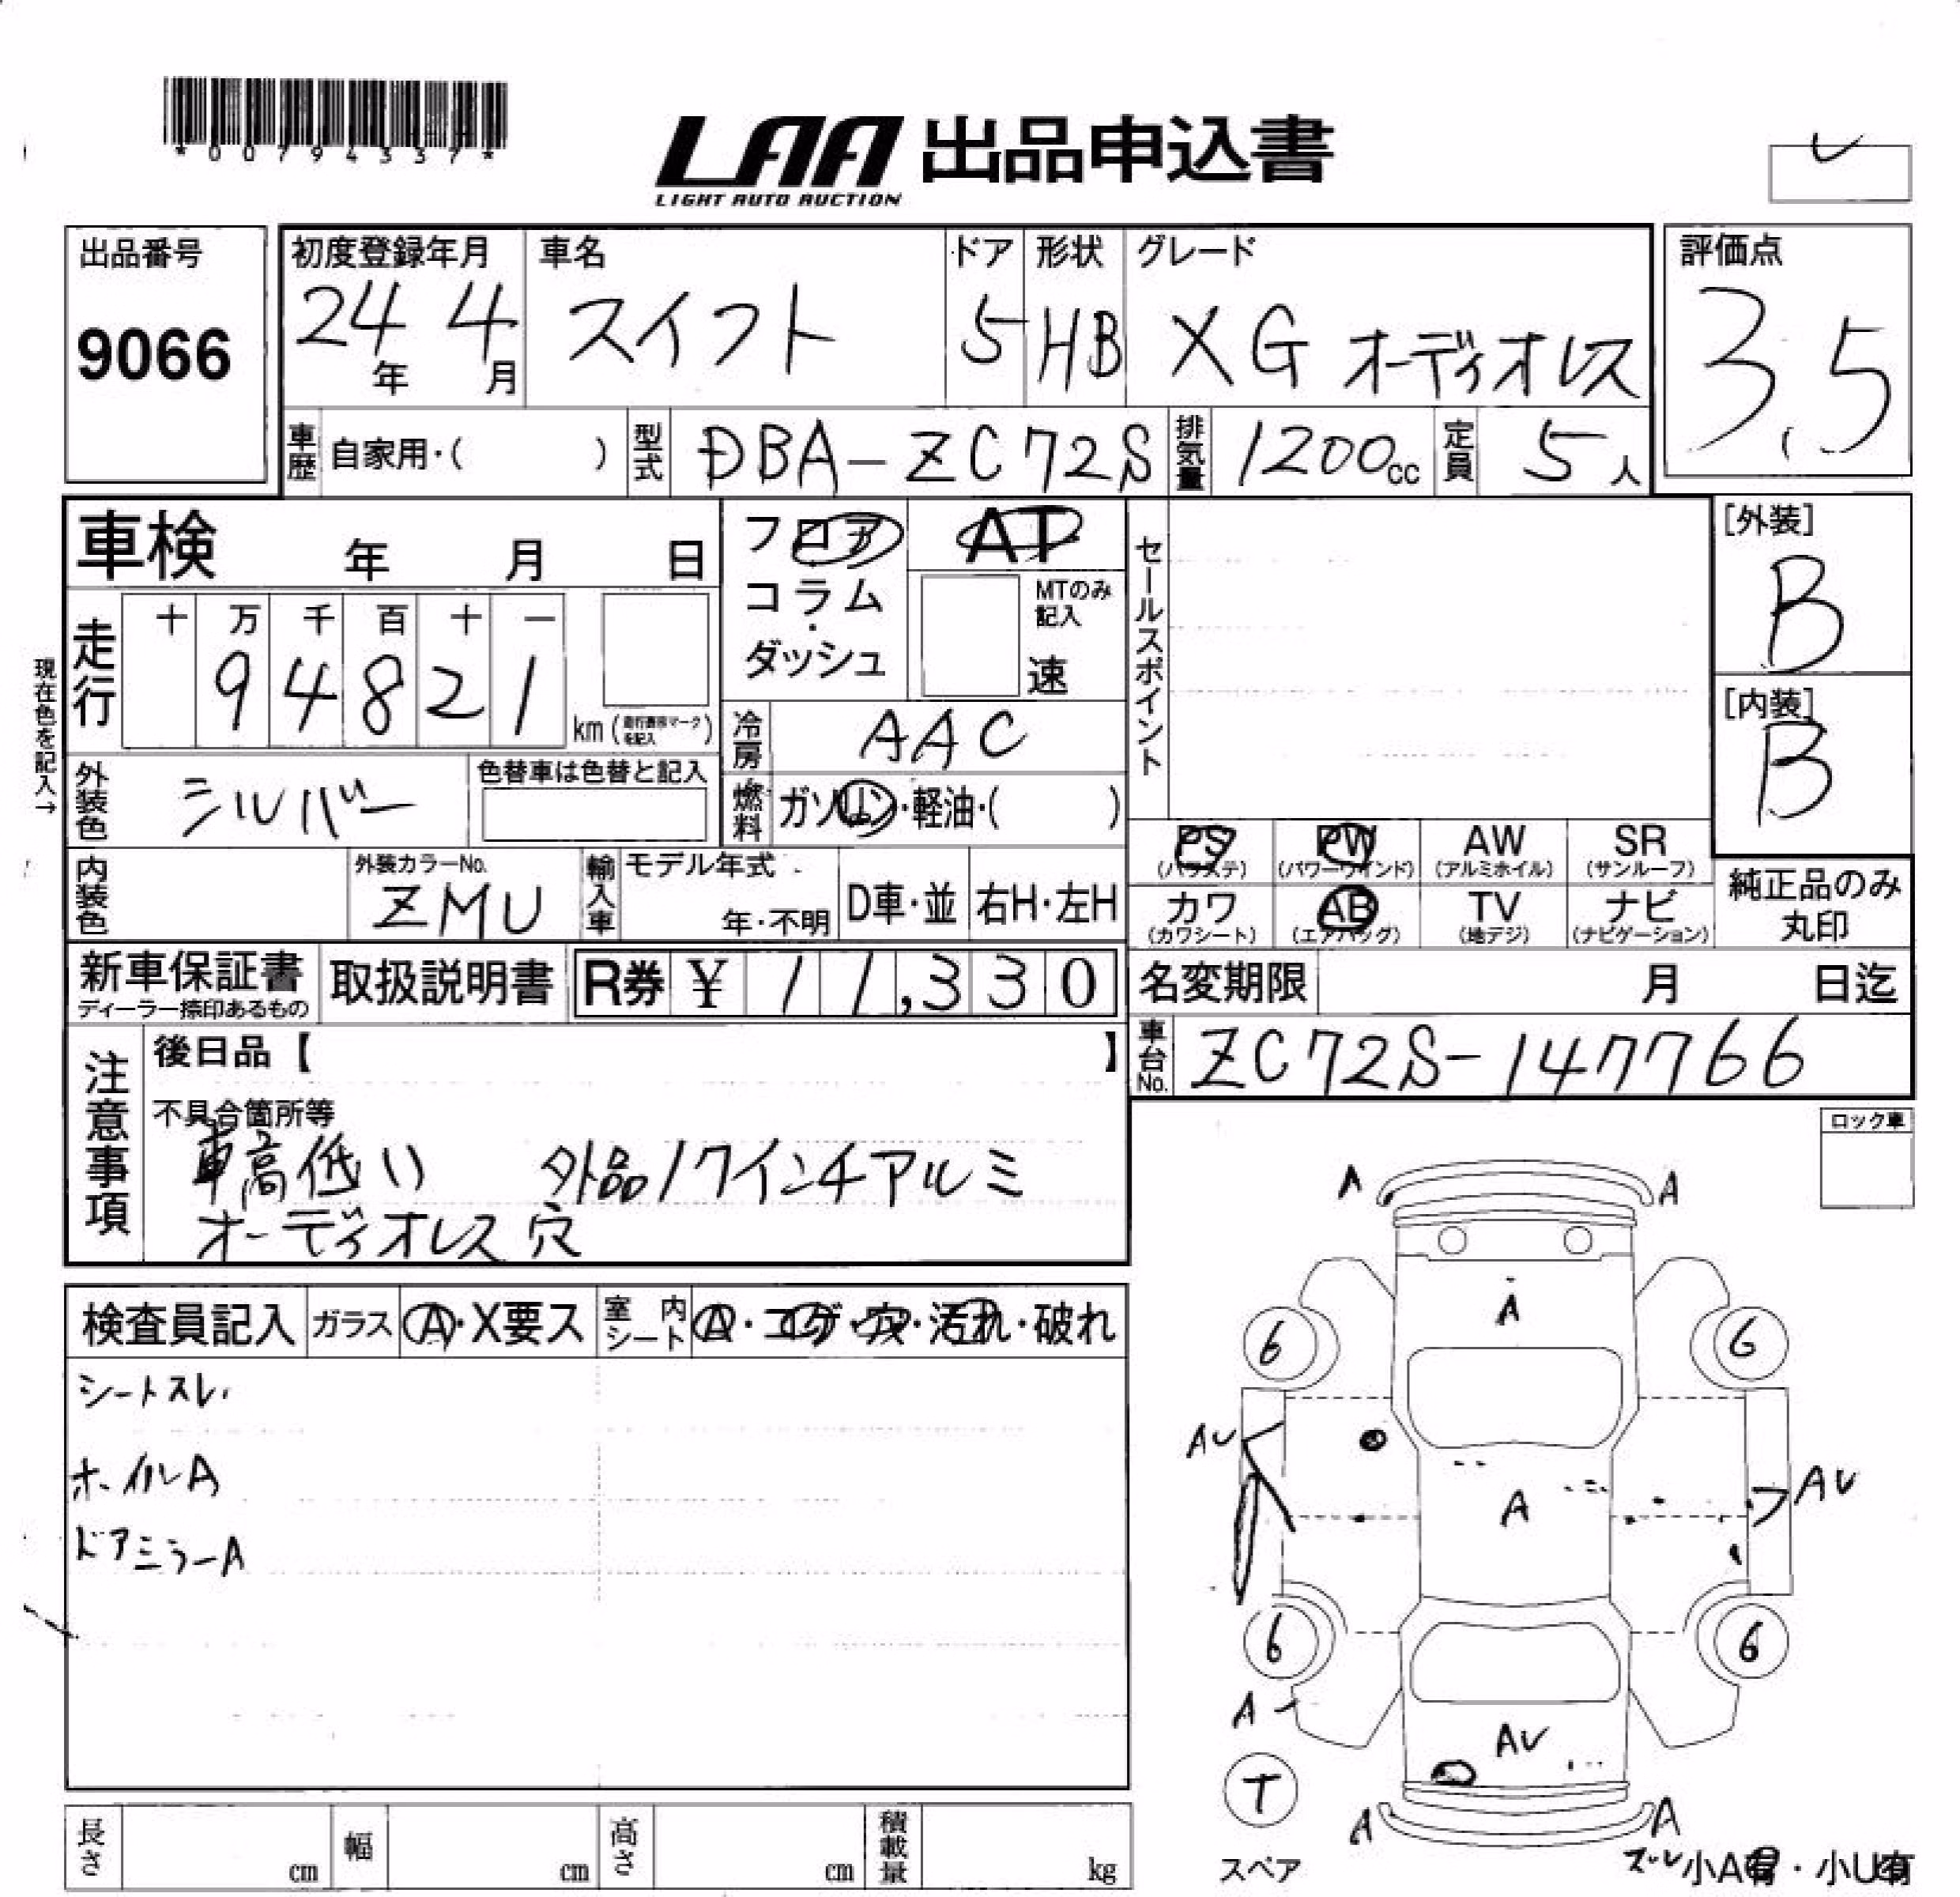 *00794337*
LAA 出品申込書
LIGHT AUTO AUCTION
出品番号
9066
初度登録年月
24年 4月
車名
スイフト
ドア
5
形状
HB
グレード
XG オーディオレス
評価点
3.5
車歴 自家用・( )
型式 DBA-ZC72S
排気量 1200cc
定員 5人
車検 年 月 日
フロア
コラム
・
ダッシュ
AT
MTのみ
記入
速
セールスポイント
[外装]
B
[内装]
B
現在色を記入→
走行
十 万 千 百 十 一
9 4 8 2 1
km (走行表示マークを記入)
冷房 AAC
外装色 シルバー
色替車は色替と記入
燃料 ガソリン・軽油・( )
PS
(パワステ)
PW
(パワーウインド)
AW
(アルミホイル)
SR
(サンルーフ)
カワ
(カワシート)
AB
(エアバッグ)
TV
(地デジ)
ナビ
(ナビゲーション)
純正品のみ
丸印
内装色
外装カラーNo.
ZMU
輸入車
モデル年式
年・不明
D車・並
右H・左H
新車保証書
ディーラー捺印あるもの
取扱説明書
R券 ¥ 11,330
名変期限 月 日迄
車台No. ZC72S-147766
注意事項
後日品【 】
不具合箇所等
車高低い 外品17インチアルミ
オーディオレス穴
ロック車
検査員記入
ガラス A・X要ス
室内シート A・コゲ・穴・汚れ・破れ
シートスレ
ホイルA
ドアミラーA
A A
A
6 6
AU
A
AU
6 6
A
AU
T
スペア
A A
スレ 小A有・小U有
長さ cm
幅 cm
高さ cm
積載量 kg